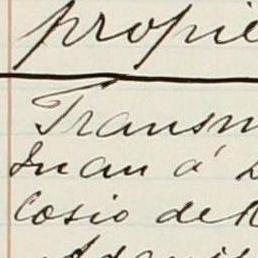 propie
Transm
Juan á
Cosio de